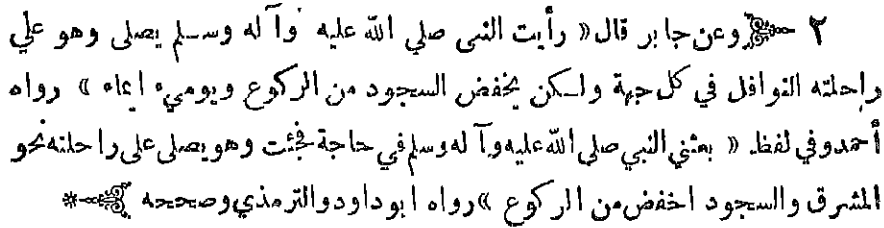 ٢ وعن جابر قال « رأيت النبى صلي الله عليه وآله وسلم يصلى وهو علي
راحلته النوافل في كل جهة ولكن يخفض السجود من الركوع ويوميء ايماء » رواه
أحمد وفي لفظ « بعثني النبي صلى الله عليه وآله وسلم في حاجة فجئت وهو يصلى على راحلته نحو
المشرق والسجود اخفض من الركوع » رواه ابوداود والترمذي وصححه *